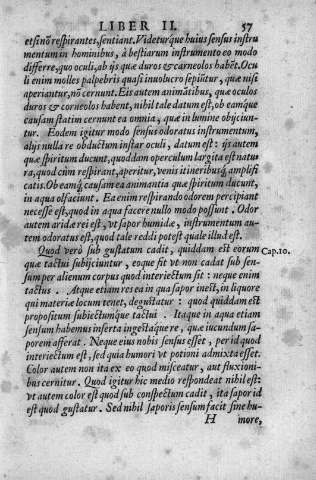 LIBER II. 57
etsi nõ respirantes, sentiant. Videturque huius sensus instru
mentum in hominibus, à bestiarum instrumento eo modo
differre, quo oculi, ab ijs quæ duros & carneolos habẽt. Ocu
li enim molles palpebris quasi inuolucro sepiũtur, quæ nisi
aperiantur, nõ cernunt. Eis autem animãtibus, quæ oculos
duros & corneolos habent, nihil tale datum est, ob eamque
causam statim cernunt ea omnia, quæ in lumine obijciun-
tur. Eodem igitur modo sensus odoratus instrumentum,
alijs nulla re obductum instar oculi, datum est: ijs autem
quæ spiritum ducunt, quoddam operculum largita est natu
ra, quod cùm respirant, aperitur, venis itineribusq; amplifi
catis. Ob eamq; causam ea animantia quæ spiritum ducunt,
in aqua olfaciunt. Ea enim respirando odorem percipiant
necesse est, quod in aqua facere nullo modo possunt. Odor
autem aridæ rei est, vt sapor humidæ, instrumentum au-
tem odoratus est, quod tale reddi potest quale illud est.
Quod verò sub gustatum cadit, quiddam est eorum
Cap. 10.
quæ tactui subijciuntur, eoque fit vt non cadat sub sen-
sum per alienum corpus quod interiectum sit: neque enim
tactus. Atque etiam res ea in qua sapor inest, in liquore
qui materiæ locum tenet, degustatur: quod quiddam est
propositum subiectumque tactui. Itaque in aqua etiam
sensum habemus inserta ingestaque re, quæ iucundum sa-
porem afferat. Neque eius nobis sensus esset, per id quod
interiectum est, sed quia humori vt potioni admixta esset.
Color autem non ita ex eo quod misceatur, aut fluxioni-
bus cernitur. Quod igitur hic medio respondeat nihil est:
vt autem color est quod sub conspectum cadit, ita sapor id
est quod gustatur. Sed nihil saporis sensum facit sine hu-
H more,